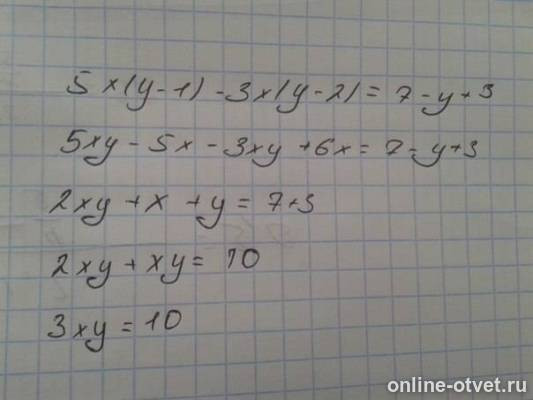 5x(y-1)-3x(y-2)=7-y+3
5xy-5x-3xy+6x=7-y+3
2xy+x+y=7+3
2xy+xy=10
3xy=10
online-otvet.ru